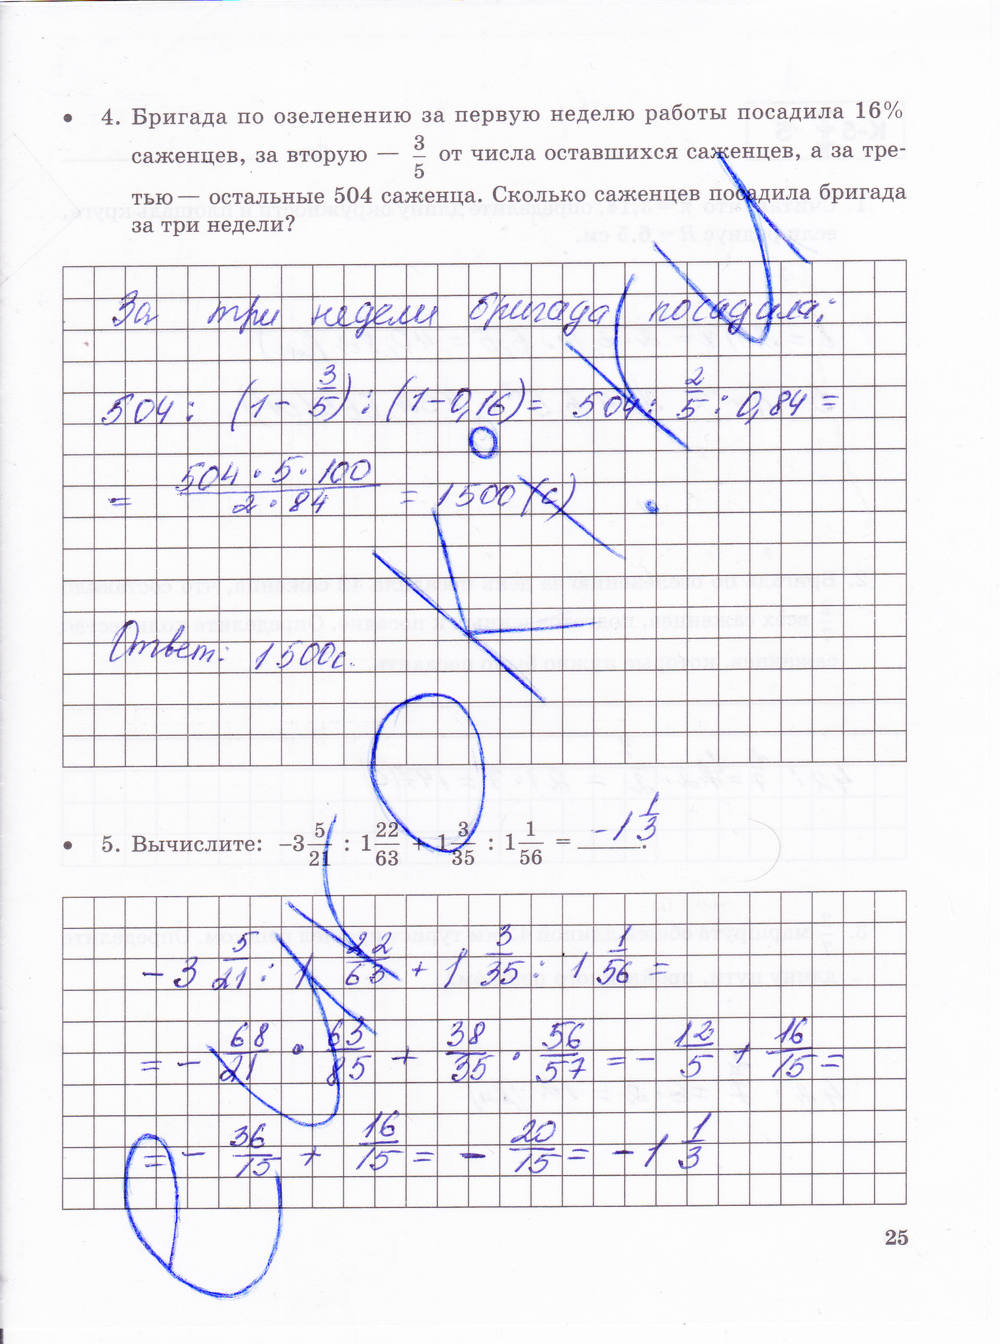 • 4. Бригада по озеленению за первую неделю работы посадила 16%
саженцев, за вторую — 3/5 от числа оставшихся саженцев, а за тре-
тью — остальные 504 саженца. Сколько саженцев посадила бригада
за три недели?
За три недели бригада посадила:
504 : (1 - 3/5) : (1 - 0,16) = 504 : 2/5 : 0,84 =
= 504 · 5 · 100 / 2 · 84 = 1500 (с)
Ответ: 1500с.
• 5. Вычислите: -3 5/21 : 1 22/63 + 1 3/35 : 1 1/56 = -1 1/3.
-3 5/21 : 1 22/63 + 1 3/35 : 1 1/56 =
= - 68/21 · 63/85 + 38/35 · 56/57 = - 12/5 + 16/15 =
= - 36/15 + 16/15 = - 20/15 = -1 1/3
25